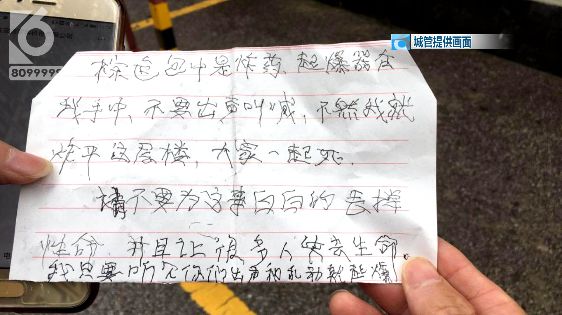 城管提供画面
8099999
棕色包中是炸药,起爆器在
我手中,不要出声叫喊,不然我就
炸平这层楼,大家一起死.
请不要为这事白白的丢
性命 并且让很多人失去生命。
我只要听见你们出声和乱动就起爆